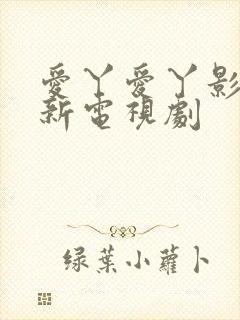 愛丫愛丫影
新電視劇
綠葉小蘿卜